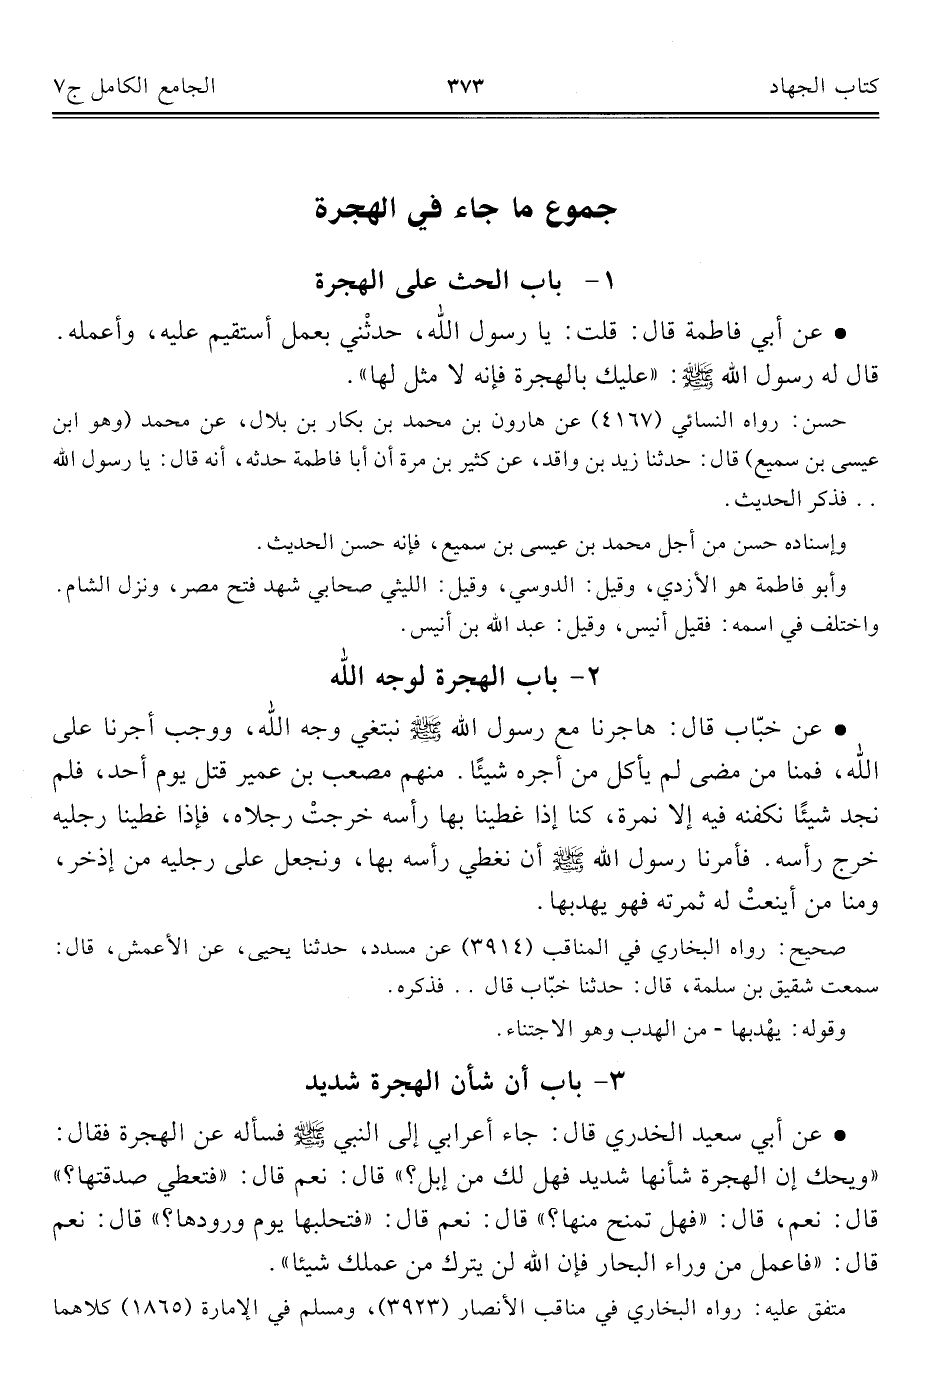 كتاب الجهاد ٣٧٣ الجامع الكامل ج٧
جموع ما جاء في الهجرة
١- باب الحث على الهجرة
● عن أبي فاطمة قال: قلت: يا رسول الله، حدثْني بعمل أستقيم عليه، وأعمله.
قال له رسول الله ﷺ: «عليك بالهجرة فإنه لا مثل لها».
حسن: رواه النسائي (٤١٦٧) عن هارون بن محمد بن بكار بن بلال، عن محمد (وهو ابن
عيسى بن سميع) قال: حدثنا زيد بن واقد، عن كثير بن مرة أن أبا فاطمة حدثه، أنه قال: يا رسول الله
.. فذكر الحديث.
وإسناده حسن من أجل محمد بن عيسى بن سميع، فإنه حسن الحديث.
وأبو فاطمة هو الأزدي، وقيل: الدوسي، وقيل: الليثي صحابي شهد فتح مصر، ونزل الشام.
واختلف في اسمه: فقيل أنيس، وقيل: عبد الله بن أنيس.
٢- باب الهجرة لوجه الله
● عن خبّاب قال: هاجرنا مع رسول الله ﷺ نبتغي وجه الله، ووجب أجرنا على
الله، فمنا من مضى لم يأكل من أجره شيئًا. منهم مصعب بن عمير قتل يوم أحد، فلم
نجد شيئًا نكفنه فيه إلا نمرة، كنا إذا غطينا بها رأسه خرجتْ رجلاه، فإذا غطينا رجليه
خرج رأسه. فأمرنا رسول الله ﷺ أن نغطي رأسه بها، ونجعل على رجليه من إذخر،
ومنا من أينعتْ له ثمرته فهو يهدبها.
صحيح: رواه البخاري في المناقب (٣٩١٤) عن مسدد، حدثنا يحيى، عن الأعمش، قال:
سمعت شقيق بن سلمة، قال: حدثنا خبّاب قال .. فذكره.
وقوله: يهْدبها - من الهدب وهو الاجتناء.
٣- باب أن شأن الهجرة شديد
● عن أبي سعيد الخدري قال: جاء أعرابي إلى النبي ﷺ فسأله عن الهجرة فقال:
«ويحك إن الهجرة شأنها شديد فهل لك من إبل؟» قال: نعم قال: «فتعطي صدقتها؟»
قال: نعم، قال: «فهل تمنح منها؟» قال: نعم قال: «فتحلبها يوم ورودها؟» قال: نعم
قال: «فاعمل من وراء البحار فإن الله لن يترك من عملك شيئا».
متفق عليه: رواه البخاري في مناقب الأنصار (٣٩٢٣)، ومسلم في الإمارة (١٨٦٥) كلاهما